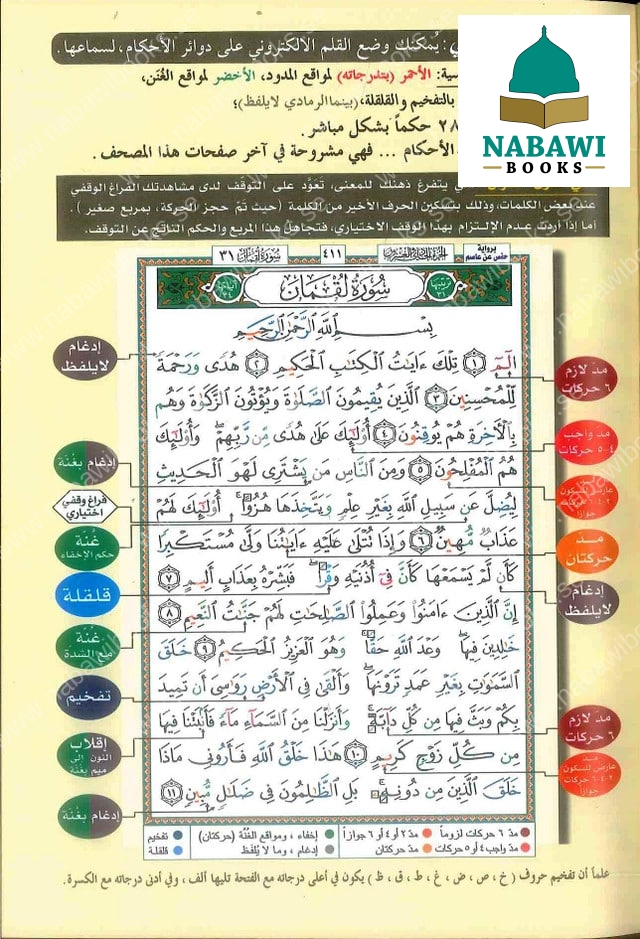 : يُمكنك وضع القلم الالكتروني على دوائر الأحكام، لسماعها.
NABAWI
BOOKS
الأحمر (بتدرجاته) لمواقع المدود، الأخضر لمواقع الغُنَن،
بالتفخيم والقلقلة، (بينما الرمادي لا يلفظ)؛
٢٨ حكماً بشكل مباشر.
الأحكام ... فهي مشروحة في آخر صفحات هذا المصحف.
يتفرغ ذهنك للمعنى، تَعَوَّد على التوقف لدى مشاهدتك الفراغ الوقفي
عند بعض الكلمات، وذلك بتسكين الحرف الأخير من الكلمة (حيث تمَّ حجز الحركة، بمربع صغير).
أما إذا أردت عدم الإلتزام بهذا الوقف الاختياري، فتجاهل هذا المربع والحكم الناتج عن التوقف.
برواية حفص عن عاصم
٤١١
سورة لقمان ٣١
ترتيبها ٣١
سُورَةُ لُقْمَان
آياتها ٣٤
بِسْمِ اللَّهِ الرَّحْمَٰنِ الرَّحِيمِ
الٓمٓ ١ تِلْكَ ءَايَٰتُ الْكِتَٰبِ الْحَكِيمِ ٢ هُدًى وَرَحْمَةً
لِّلْمُحْسِنِينَ ٣ الَّذِينَ يُقِيمُونَ الصَّلَوٰةَ وَيُؤْتُونَ الزَّكَوٰةَ وَهُم
بِالْأَخِرَةِ هُمْ يُوقِنُونَ ٤ أُو۟لَٰٓئِكَ عَلَىٰ هُدًى مِّن رَّبِّهِمْ وَأُو۟لَٰٓئِكَ
هُمُ الْمُفْلِحُونَ ٥ وَمِنَ النَّاسِ مَن يَشْتَرِى لَهْوَ الْحَدِيثِ
لِيُضِلَّ عَن سَبِيلِ اللَّهِ بِغَيْرِ عِلْمٍ وَيَتَّخِذَهَا هُزُوًا أُو۟لَٰٓئِكَ لَهُمْ
عَذَابٌ مُّهِينٌ ٦ وَإِذَا تُتْلَىٰ عَلَيْهِ ءَايَٰتُنَا وَلَّىٰ مُسْتَكْبِرًا
كَأَن لَّمْ يَسْمَعْهَا كَأَنَّ فِىٓ أُذُنَيْهِ وَقْرًا فَبَشِّرْهُ بِعَذَابٍ أَلِيمٍ ٧
إِنَّ الَّذِينَ ءَامَنُوا۟ وَعَمِلُوا۟ الصَّٰلِحَٰتِ لَهُمْ جَنَّٰتُ النَّعِيمِ ٨
خَٰلِدِينَ فِيهَا وَعْدَ اللَّهِ حَقًّا وَهُوَ الْعَزِيزُ الْحَكِيمُ ٩ خَلَقَ
السَّمَٰوَٰتِ بِغَيْرِ عَمَدٍ تَرَوْنَهَا وَأَلْقَىٰ فِى الْأَرْضِ رَوَٰسِىَ أَن تَمِيدَ
بِكُمْ وَبَثَّ فِيهَا مِن كُلِّ دَآبَّةٍ وَأَنزَلْنَا مِنَ السَّمَآءِ مَآءً فَأَنۢبَتْنَا فِيهَا
مِن كُلِّ زَوْجٍ كَرِيمٍ ١٠ هَٰذَا خَلْقُ اللَّهِ فَأَرُونِى مَاذَا
خَلَقَ الَّذِينَ مِن دُونِهِ بَلِ الظَّٰلِمُونَ فِى ضَلَٰلٍ مُّبِينٍ ١١
مدّ لازم
٦ حركات
مد واجب
٤-٥ حركات
مد
عارض للسكون
٢-٤-٦ حركات
جوازاً
مد
حركتان
إدغام
لا يلفظ
مد لازم
٦ حركات
مد
عارض للسكون
٢-٤-٦ حركات
جوازاً
إدغام
لا يلفظ
إدغام بغُنة
فراغ وقفي
اختياري
غُنة
حكم الإخفاء
قلقلة
غُنة
مع الشدة
تفخيم
إقلاب
النون إلى
ميم بغُنة
إدغام بغُنة
مدّ ٦ حركات لزوماً
مدّ ٢ أو ٤ أو ٦ جوازاً
إخفاء، ومواقع الغُنَّة (حركتان)
تفخيم
مدّ واجب ٤ أو ٥ حركات
مدّ حركتان
إدغام، وما لا يُلفَظ
قلقلة
علماً أن تفخيم حروف (خ، ص، ض، غ، ط، ق، ظ) يكون في أعلى درجاته مع الفتحة تليها ألف، وفي أدنى درجاته مع الكسرة.